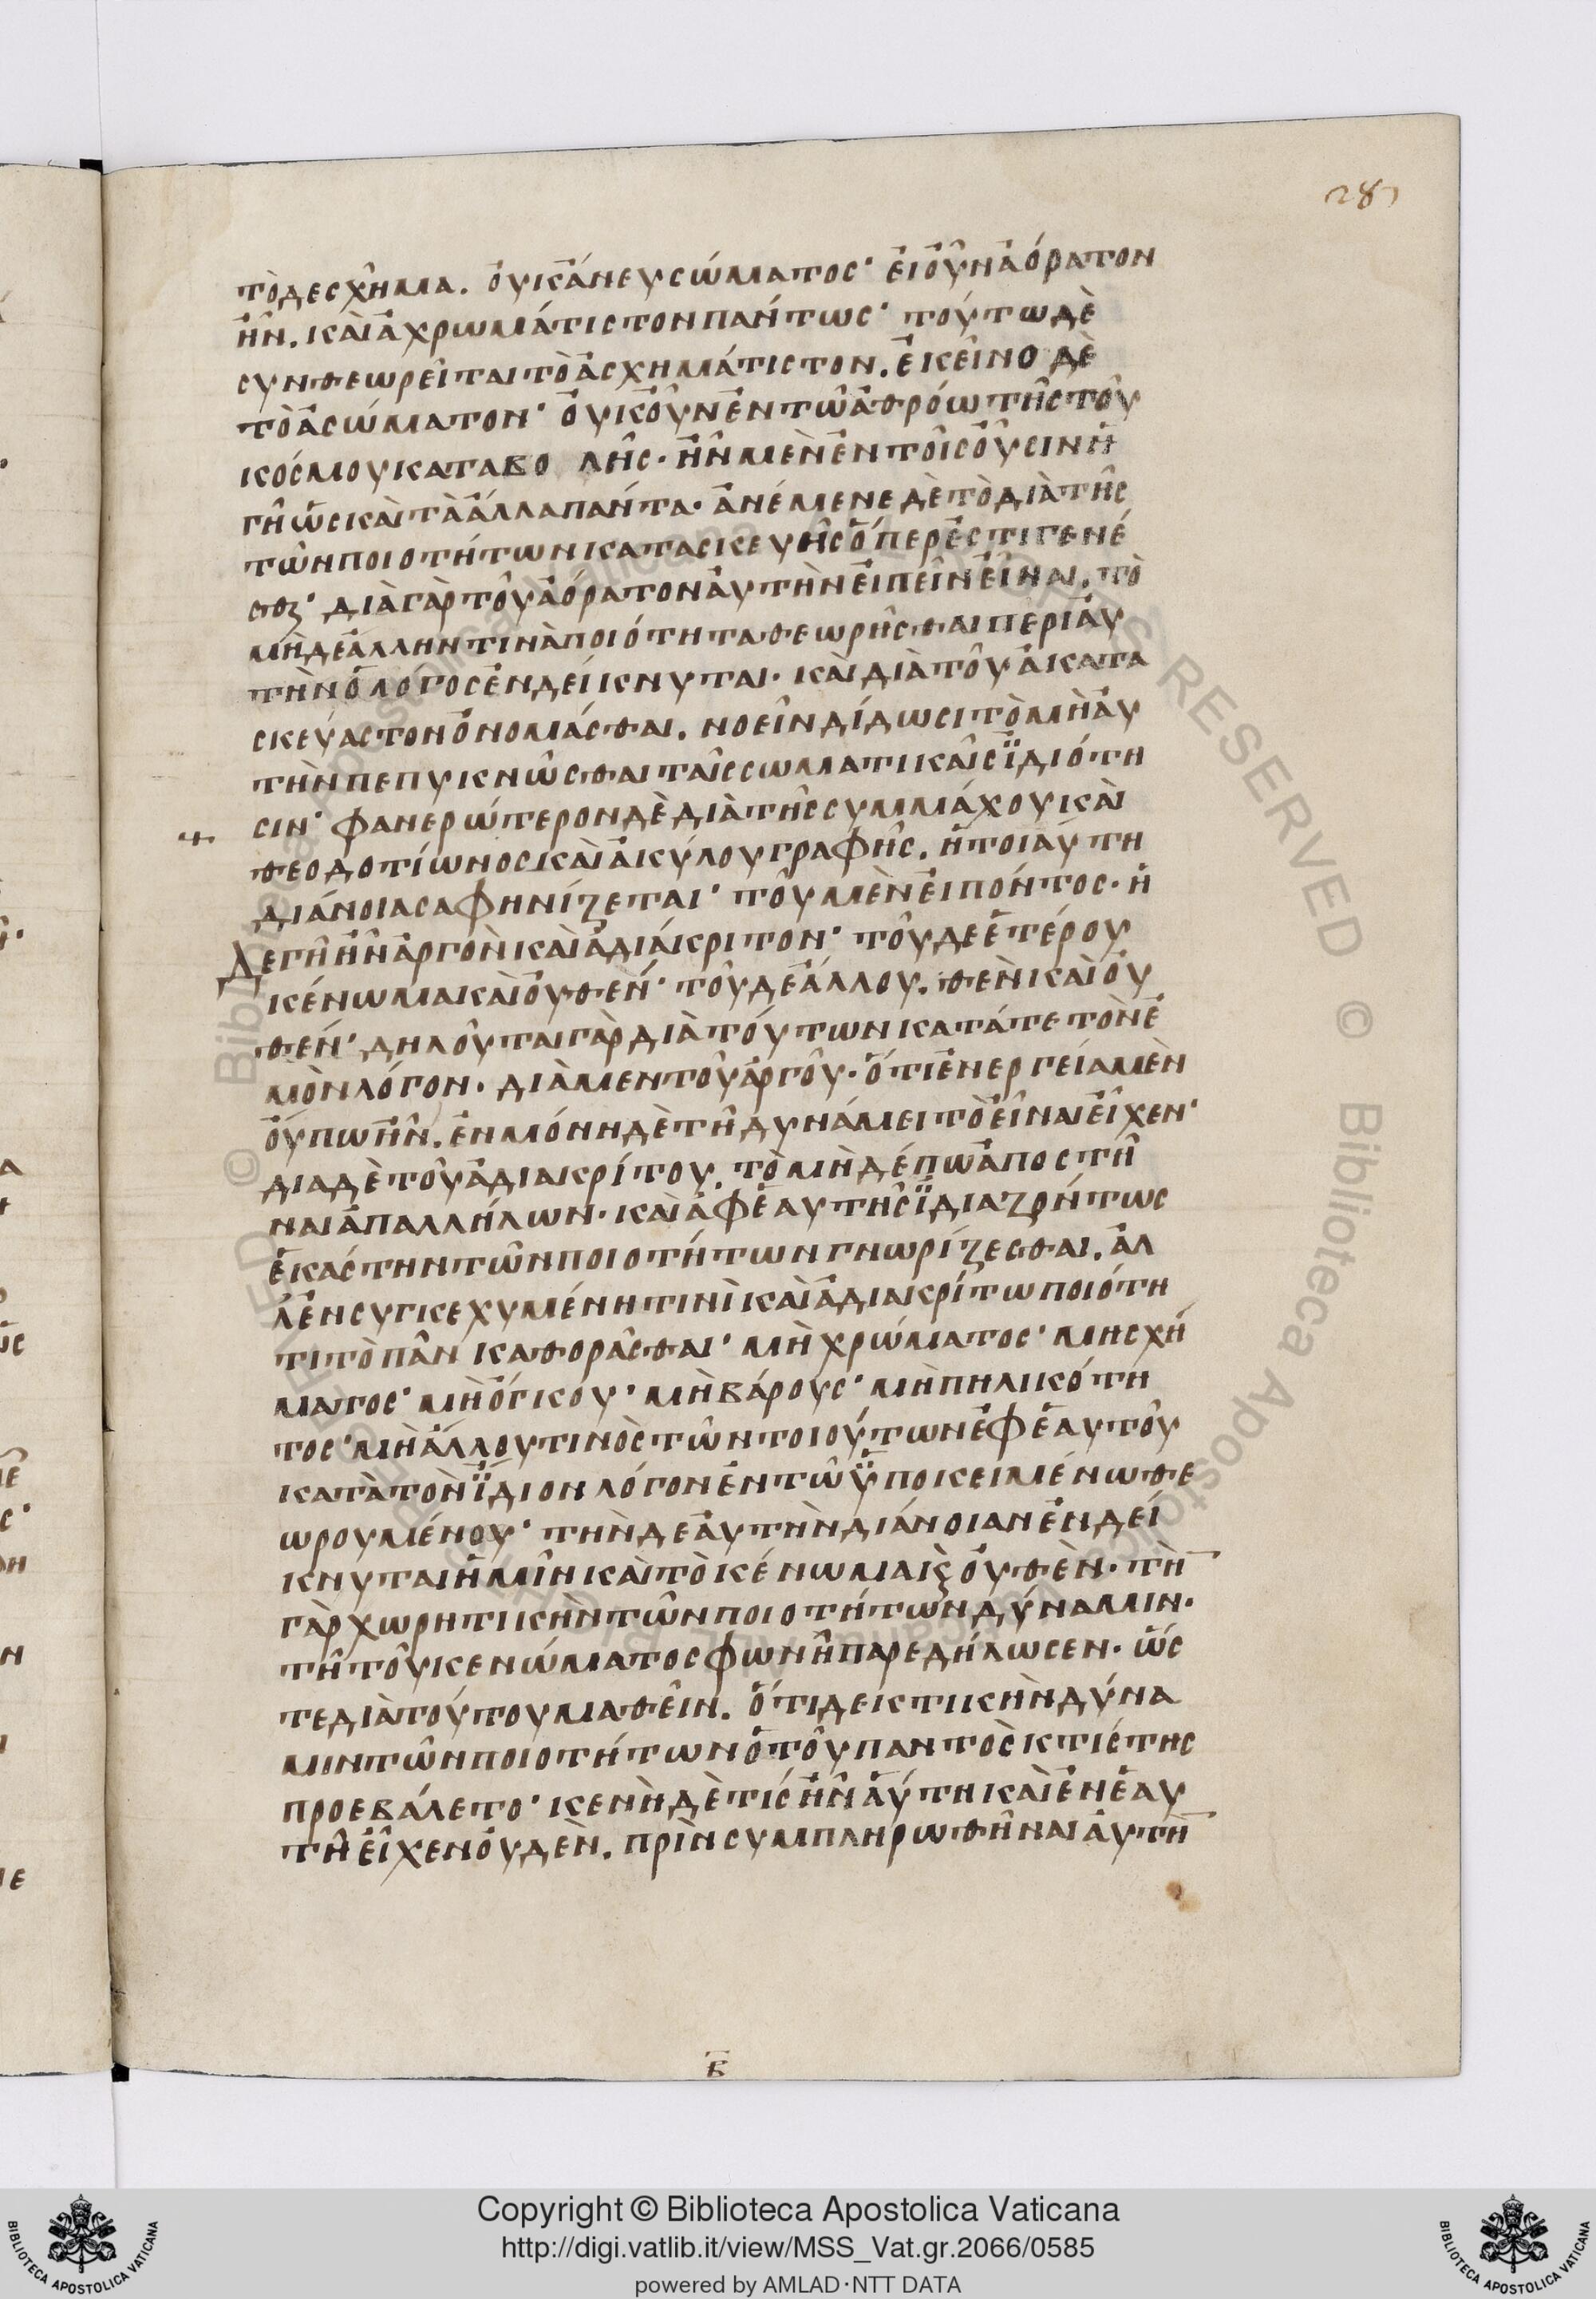 287
τὸ δε σχῆμα. οὐκ ἄνευ σώματος· εἰ οὖν ἀόρατον
ἦν. καὶ ἀχρωμάτιστον πάντως· τούτω δὲ
συνθεωρεῖται τὸ ἀσχημάτιστον. ἐκεῖνο δὲ
τὸ ἀσώματον· οὐκοῦν ἐν τῶ ἀθρόω τῆς τοῦ
κόσμου καταβολῆς· ἦν μὲν ἐν τοῖς οὖσιν ἡ
γῆ ὡς καὶ τὰ ἄλλα πάντα· ἀνέμενε δὲ τὸ διὰ τῆς
τῶν ποιοτήτων κατασκευῆς ὅπερ ἐστὶ γενέ
σθαι· διὰ γὰρ τοῦ ἀόρατον αὐτὴν εἰπεῖν εἶναι. τὸ
μὴ δε ἄλλην τινὰ ποιότητα θεωρῆσθαι περὶ αὐ
τὴν ὁ λόγος ἐνδείκνυται· καὶ διὰ τοῦ ἀκατα
σκεύαστον ὀνομάσθαι. νοεῖν δίδωσι τὸ μὴ αὐ
τὴν πεπυκνῶσθαι ταῖς σωματικαῖς ϊδιότη
σιν· φανερώτερον δὲ διὰ τῆς συμμάχου καὶ
θεοδοτίωνος καὶ ἀκύλου γραφῆς. ἡ τοιαύτη
διάνοια σαφηνίζεται· τοῦ μὲν εἰπόντος· ἡ
Δε γῆ ἦν ἀργὸν καὶ ἀδιάκριτον· τοῦ δε ἑτέρου
κένωμα καὶ οὐθέν· τοῦ δε ἄλλου. θὲν καὶ οὐ
θέν· δηλοῦται γὰρ διὰ τούτων κατά τε τὸν ἐ
μὸν λόγον· διὰ μεν τοῦ ἀργοῦ· ὅτι ἐνεργεία μὲν
οὔπω ἦν. ἐν μόνη δὲ τῆ δυνάμει τὸ εἶναι εἶχεν·
δια δὲ τοῦ ἀδιακρίτου. τὸ μὴ δέπω ἀποστῆ
ναι ἀπ αλλήλων· καὶ ἀφ ἑαυτῆς ϊδιαζόντως
ἑκάστην τῶν ποιοτήτων γνωρίζεσθαι. ἀλ
λ ἐν συγκεχυμένη τινὶ καὶ ἀδιακρίτω ποιότη
τι τὸ πᾶν καθορᾶσθαι· μὴ χρώματος· μη σχή
ματος· μὴ ὄγκου· μὴ βάρους· μὴ πηλικότη
τος· μὴ ἄλλου τινὸς τῶν τοιούτων ἐφ ἑαυτοῦ
κατὰ τὸν ϊδιον λόγον ἐν τῶ ϋποκειμένω θε
ωρουμένου· τὴν δε αὐτὴν διάνοιαν ἐνδεί
κνυται ἡμῖν καὶ τὸ κένωμα κ̀ οὐθὲν· τὴ̄
γὰρ χωρητικὴν τῶν ποιοτήτων δύναμιν·
τῆ τοῦ κενώματος φωνῆ παρεδήλωσεν· ὥσ
τε διὰ τούτου μαθεῖν. ὅτι δεκτικὴν δύνα
μιν τῶν ποιοτήτων ὁ τοῦ παντὸς κτίστης
προεβάλετο· κενὴ δὲ τίς ἦν αὕτη καὶ ἐν ἑαυ
τῆ εἶχεν οὐδὲν. πρὶν συμπληρωθῆναι αὐτὴ̄
β̄
Copyright © Biblioteca Apostolica Vaticana
http://digi.vatlib.it/view/MSS_Vat.gr.2066/0585
powered by AMLAD·NTT DATA